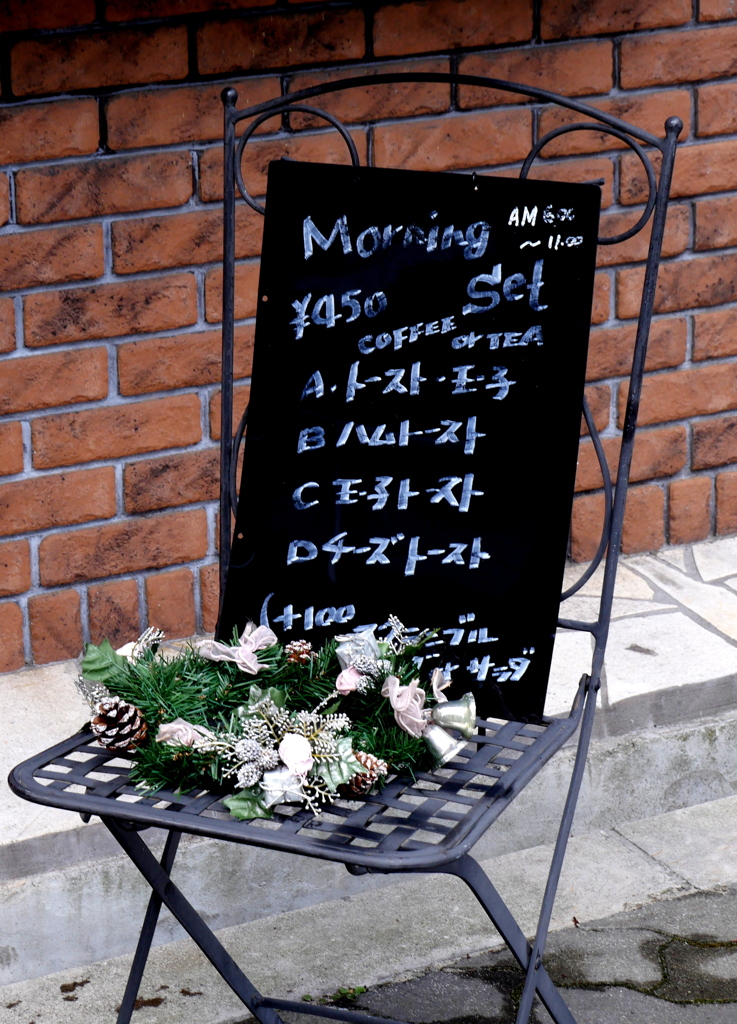 Morning AM 6:00
~ 11:00
¥450 Set
COFFEE or TEA
A.トースト・玉子
B ハムトースト
C 玉子トースト
D チーズトースト
(+100
ブル
サラダ